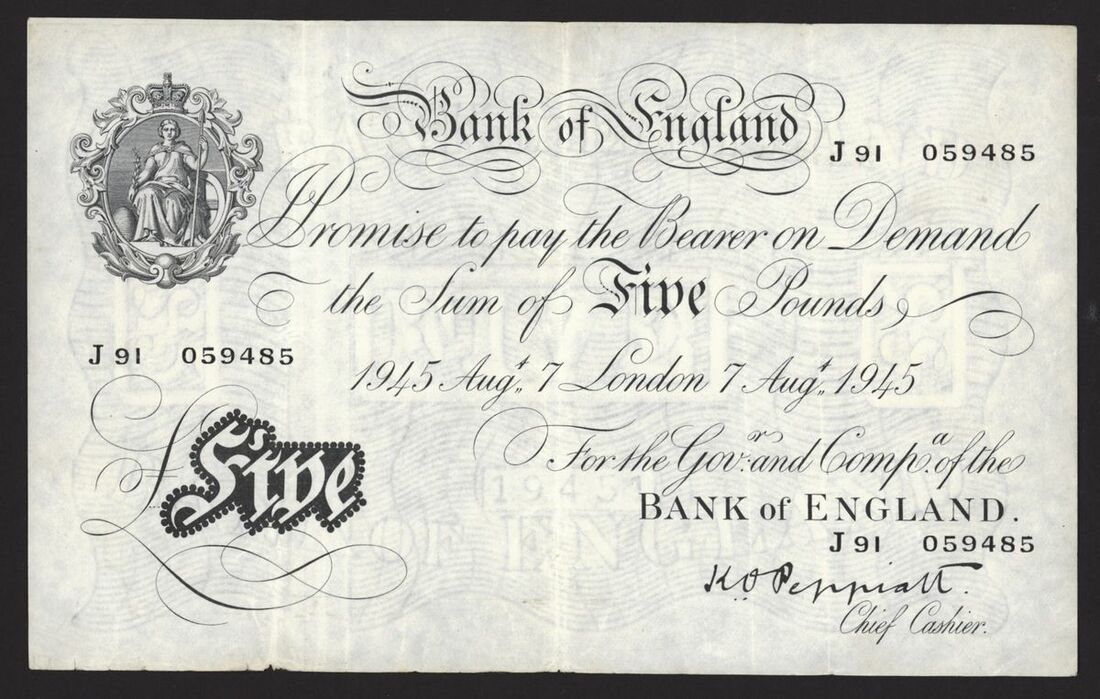 Bank of England
J 91 059485
I Promise to pay the Bearer on Demand
the Sum of Five Pounds
J 91 059485
1945 Augt. 7 London 7 Augt. 1945
£Five
For the Govr. and Compa. of the
BANK of ENGLAND.
J 91 059485
K.O Peppiatt.
Chief Cashier.